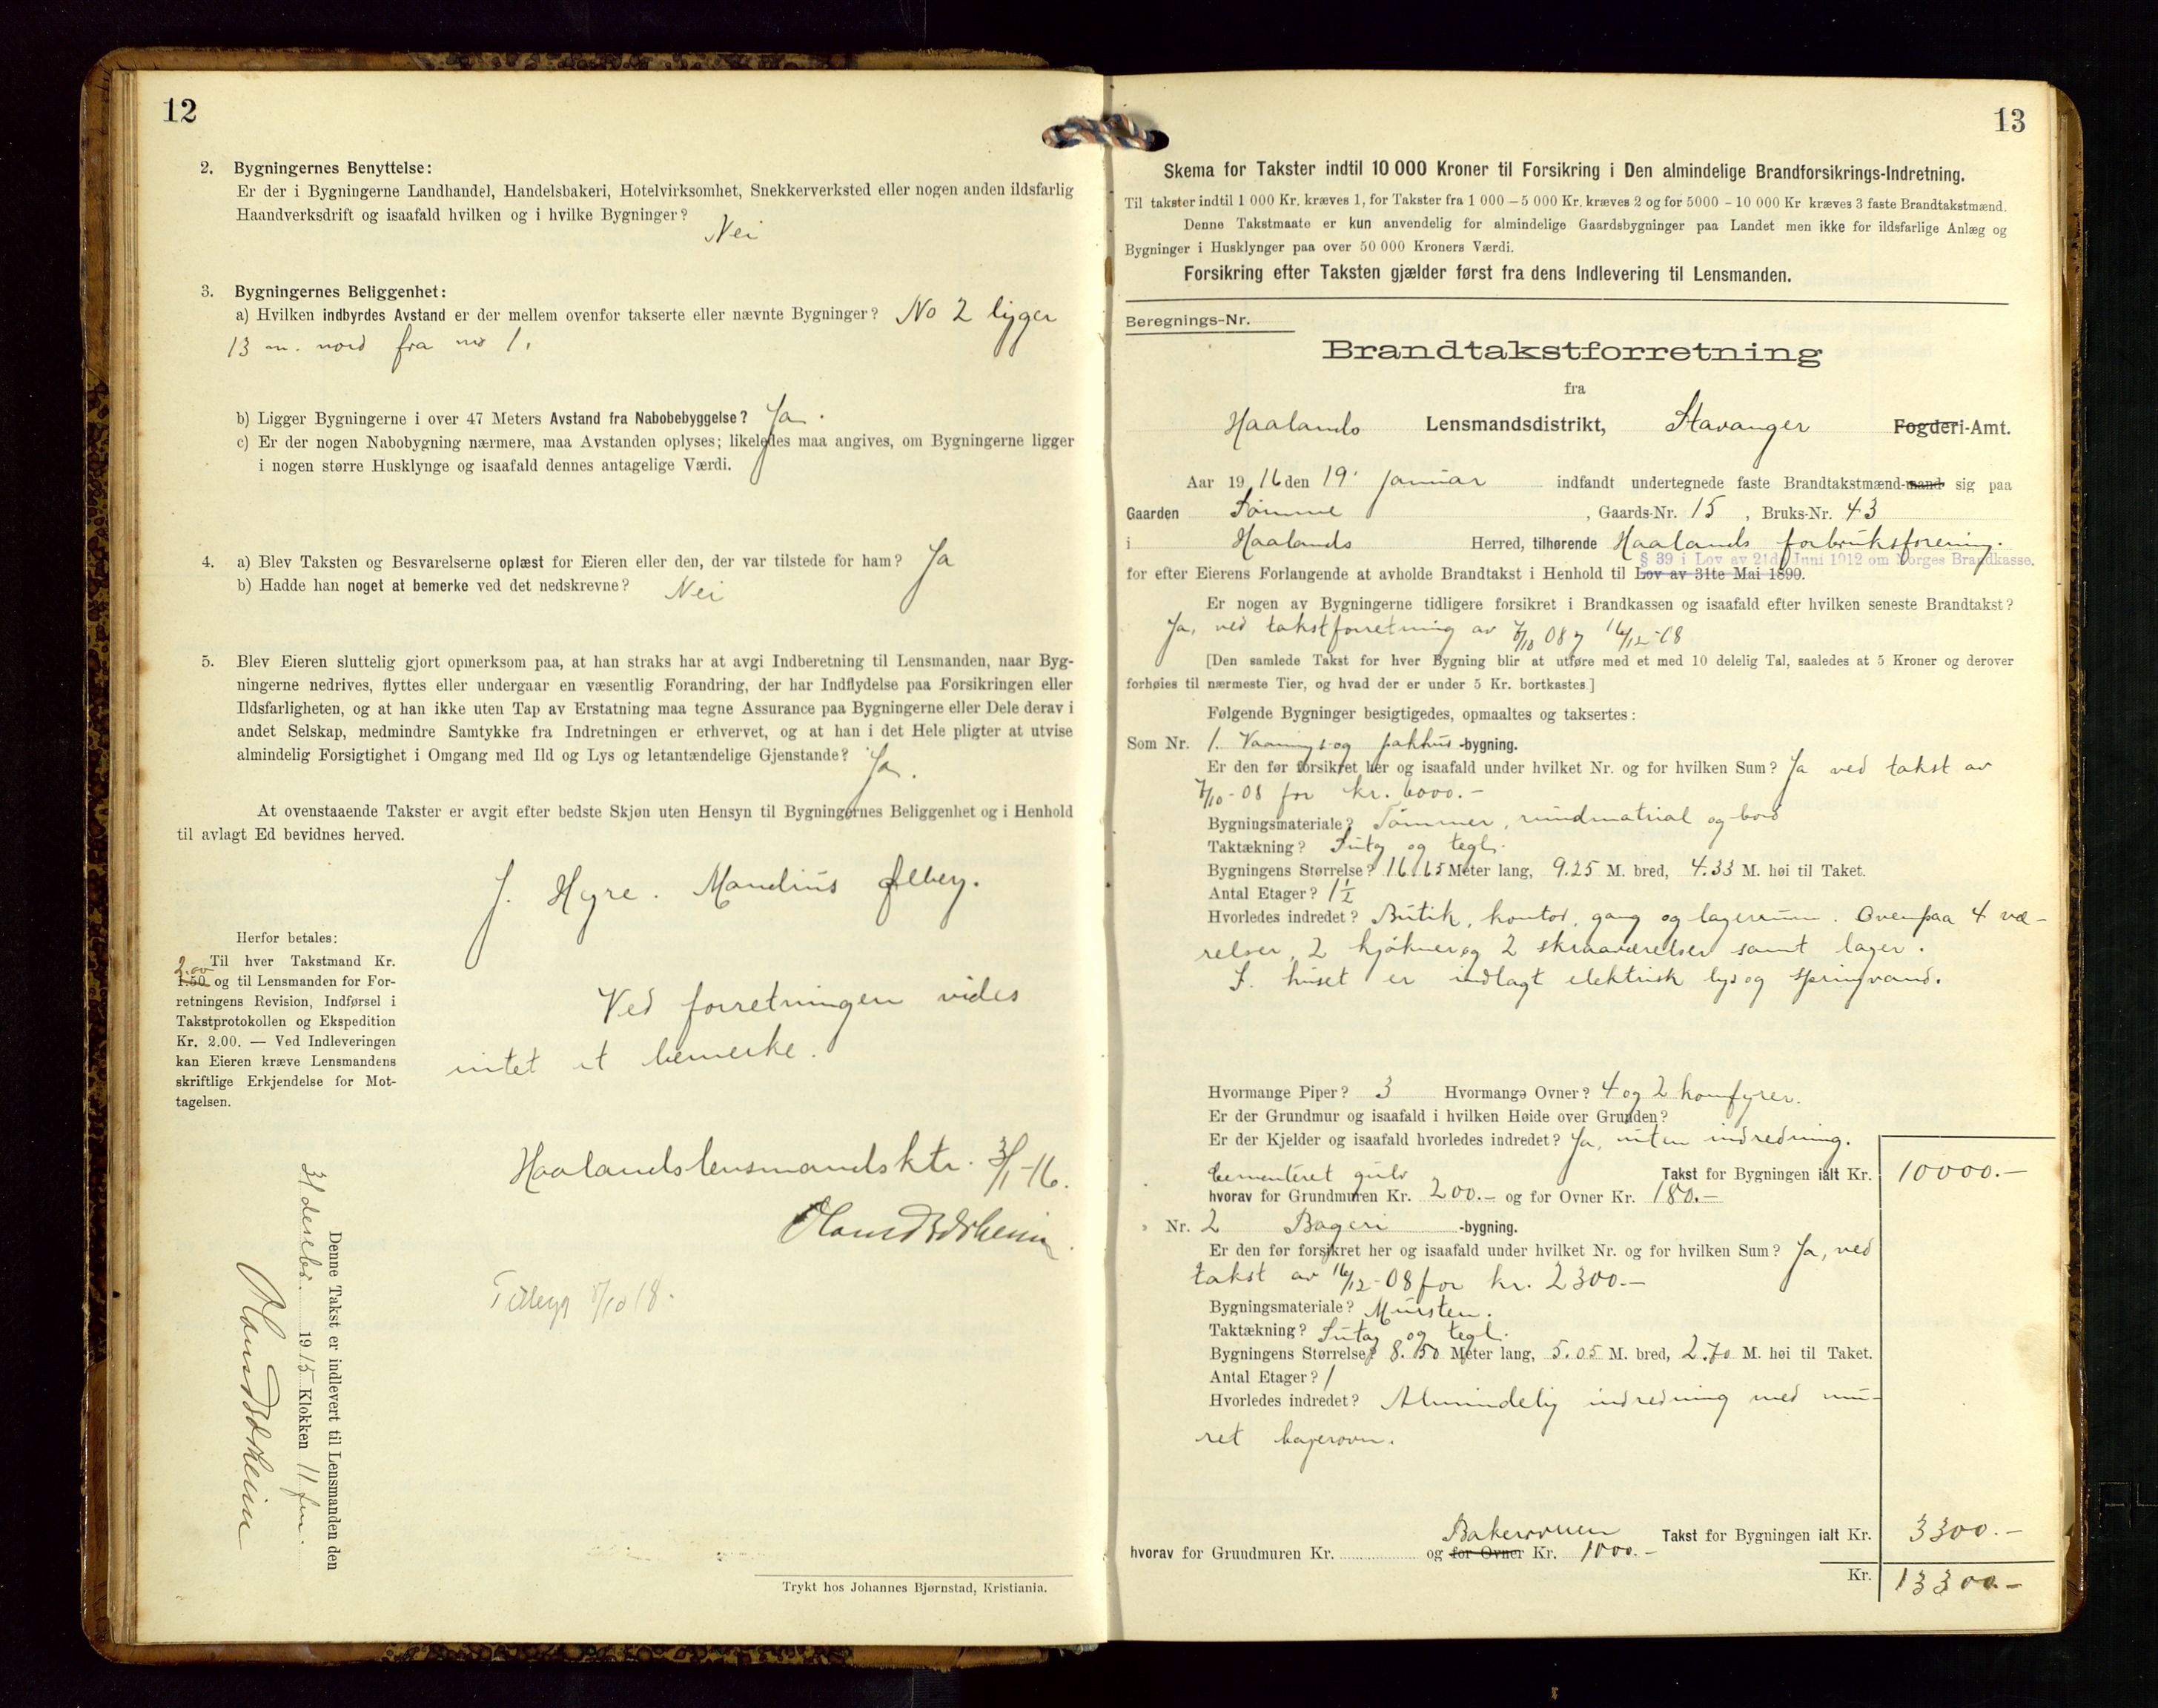 12
2. Bygningernes Benyttelse:
Er der i Bygningerne Landhandel, Handelsbakeri, Hotelvirksomhet, Snekkerverksted eller nogen anden ildsfarlig
Haandverksdrift og isaafald hvilken og i hvilke Bygninger? Nei
3. Bygningernes Beliggenhet:
a) Hvilken indbyrdes Avstand er der mellem ovenfor takserte eller nævnte Bygninger? No 2 ligger
13 m. nord fra no 1.
b) Ligger Bygningerne i over 47 Meters Avstand fra Nabobebyggelse? Ja.
c) Er der nogen Nabobygning nærmere, maa Avstanden oplyses; likeledes maa angives, om Bygningerne ligger
i nogen større Husklynge og isaafald dennes antagelige Værdi.
4. a) Blev Taksten og Besvarelserne oplæst for Eieren eller den, der var tilstede for ham? Ja
b) Hadde han noget at bemerke ved det nedskrevne? Nei
5. Blev Eieren sluttelig gjort opmerksom paa, at han straks har at avgi Indberetning til Lensmanden, naar Byg-
ningerne nedrives, flyttes eller undergaar en væsentlig Forandring, der har Indflydelse paa Forsikringen eller
Ildsfarligheten, og at han ikke uten Tap av Erstatning maa tegne Assurance paa Bygningerne eller Dele derav i
andet Selskap, medmindre Samtykke fra Indretningen er erhvervet, og at han i det Hele pligter at utvise
almindelig Forsigtighet i Omgang med Ild og Lys og letantændelige Gjenstande? Ja.
At ovenstaaende Takster er avgit efter bedste Skjøn uten Hensyn til Bygningernes Beliggenhet og i Henhold
til avlagt Ed bevidnes herved.
J. Hyre. Mandius Ølberg.
Herfor betales:
Til hver Takstmand Kr.
2.00
1.50 og til Lensmanden for For-
retningens Revision, Indførsel i
Takstprotokollen og Ekspedition
Kr. 2.00. — Ved Indleveringen
kan Eieren kræve Lensmandens
skriftlige Erkjendelse for Mot-
tagelsen.
Ved forretningen vides
intet at bemerke.
Haalands lensmandsktr. 3/1-16.
Tillegg 7/10 18.
Denne Takst er indlevert til Lensmanden den
31 desebr. 1915 Klokken 11 fm.
Trykt hos Johannes Bjørnstad, Kristiania.
13
Skema for Takster indtil 10 000 Kroner til Forsikring i Den almindelige Brandforsikrings-Indretning.
Til takster indtil 1 000 Kr. kræves 1, for Takster fra 1 000 – 5 000 Kr. kræves 2 og for 5000 – 10 000 Kr kræves 3 faste Brandtakstmænd.
Denne Takstmaate er kun anvendelig for almindelige Gaardsbygninger paa Landet men ikke for ildsfarlige Anlæg og
Bygninger i Husklynger paa over 50 000 Kroners Værdi.
Forsikring efter Taksten gjælder først fra dens Indlevering til Lensmanden.
Beregnings-Nr.
Brandtakstforretning
fra
Haalands Lensmandsdistrikt, Stavanger Fogderi-Amt.
Aar 1916 den 19. januar indfandt undertegnede faste Brandtakstmænd-mand sig paa
Gaarden Sømme, Gaards-Nr. 15, Bruks-Nr. 43
i Haalands Herred, tilhørende Haalands forbruksforening.
§ 39 i Lov av 21de Juni 1912 om Norges Brandkasse.
for efter Eierens Forlangende at avholde Brandtakst i Henhold til Lov av 31te Mai 1890.
Er nogen av Bygningerne tidligere forsikret i Brandkassen og isaafald efter hvilken seneste Brandtakst?
Ja, ved takstforretning av 7/10 08 og 16/12-08
[Den samlede Takst for hver Bygning blir at utføre med et med 10 delelig Tal, saaledes at 5 Kroner og derover
forhøies til nærmeste Tier, og hvad der er under 5 Kr. bortkastes.]
Følgende Bygninger besigtigedes, opmaaltes og taksertes:
Som Nr. 1. Vaanings og pakhus-bygning.
Er den før forsikret her og isaafald under hvilket Nr. og for hvilken Sum? Ja ved takst av
7/10-08 for kr. 6000.-
Bygningsmateriale? Tømmer, rundmatrial og bord
Taktækning? Sutag og tegl.
Bygningens Størrelse? 16.65 Meter lang, 9.25 M. bred, 4.33 M. høi til Taket.
Antal Etager? 1½
Hvorledes indredet? Butik, kontor, gang og lagerrum. Ovenpaa 4 væ-
relser, 2 kjøkner og 2 skraaværelser samt lager.
I huset er indlagt elektrisk lys og springvand.
Hvormange Piper? 3 Hvormange Ovner? 4 og 2 komfyrer.
Er der Grundmur og isaafald i hvilken Høide over Grunden?
Er der Kjelder og isaafald hvorledes indredet? Ja, uten indredning.
Cementeret gulv Takst for Bygningen ialt Kr. 10000.—
hvorav for Grundmuren Kr. 200.- og for Ovner Kr. 180.-
Nr. 2 Bageri -bygning.
Er den før forsikret her og isaafald under hvilket Nr. og for hvilken Sum? Ja, ved
takst av 16/12-08 for kr. 2300.—
Bygningsmateriale? Mursten.
Taktækning? Sutag og tegl.
Bygningens Størrelse? 8.50 Meter lang, 5.05 M. bred, 2.70 M. høi til Taket.
Antal Etager? 1
Hvorledes indredet? Almindelig indredning med mu-
ret bagerovn.
Bakerovnen Takst for Bygningen ialt Kr. 3300.—
hvorav for Grundmuren Kr. og for Ovner Kr. 1000.—
Kr. 13300.—